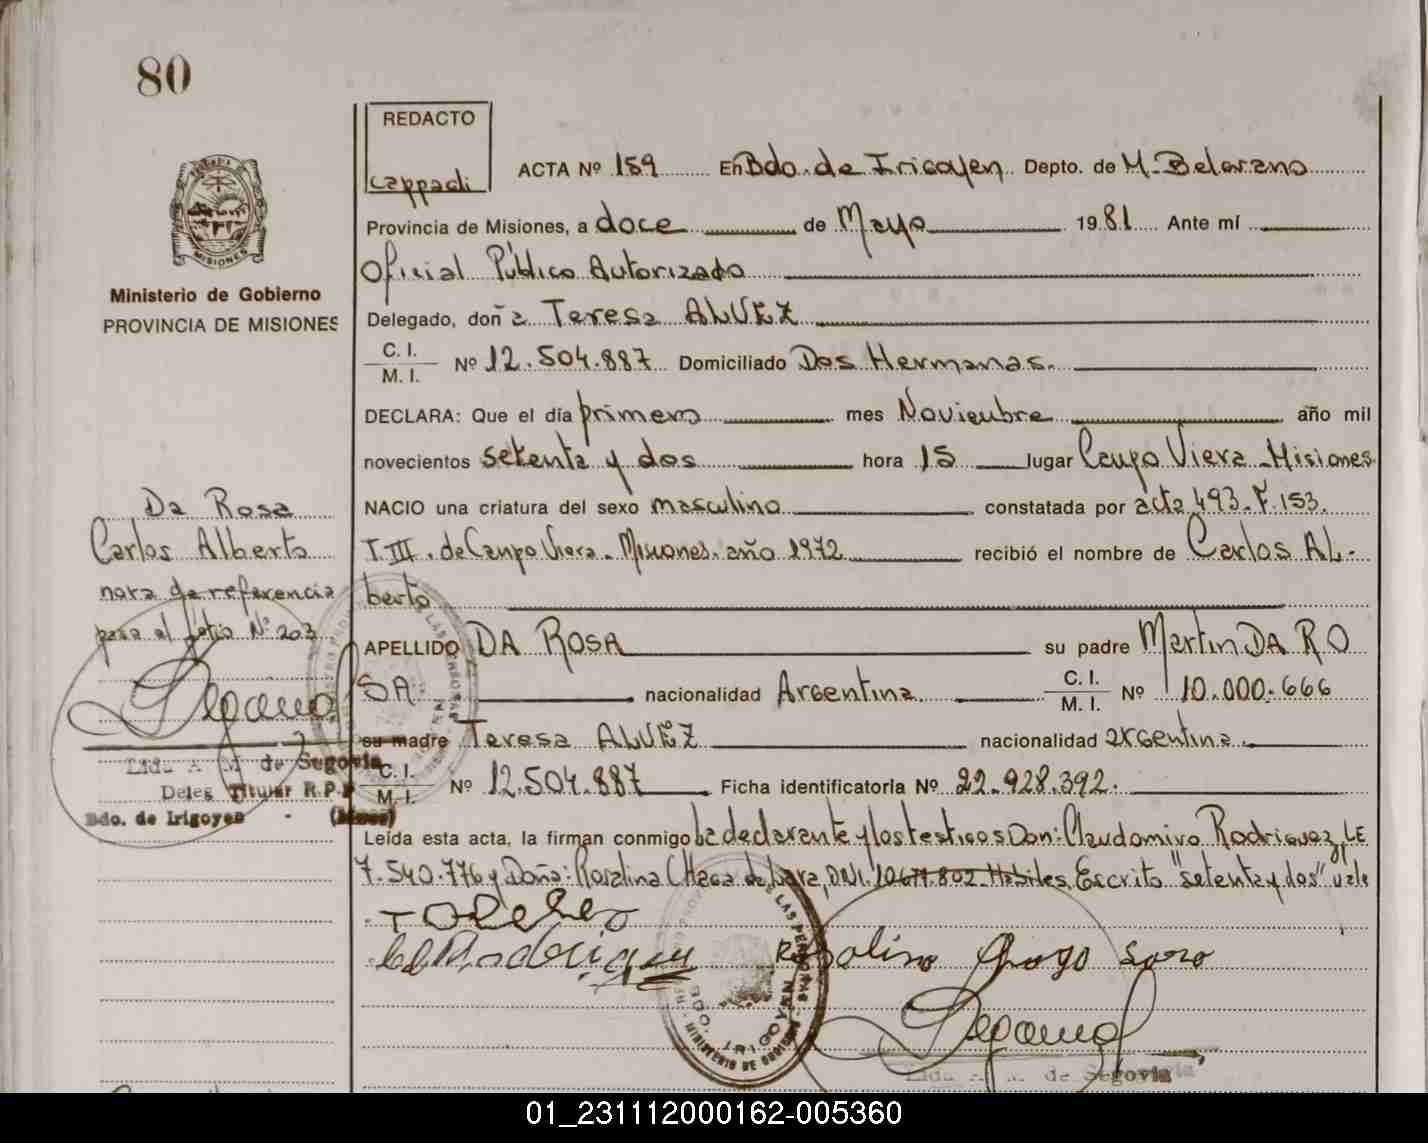 80
REDACTO
cappadi
ACTA Nº 159 En Bdo. de Irigoyen Depto. de M. Belgrano
Provincia de Misiones, a doce de Mayo 1981 Ante mí
Oficial Público Autorizado
Delegado, doña Teresa ALVEZ
C. I.
M. I.
Nº 12.504.887 Domiciliado Dos Hermanas.
DECLARA: Que el día primero mes Noviembre año mil
novecientos setenta y dos hora 15 lugar Campo Viera - Misiones
NACIO una criatura del sexo masculino constatada por acta 493. F. 153.
T. III. de Campo Viera - Misiones. año 1972 recibió el nombre de Carlos AL-
berto
APELLIDO DA ROSA su padre Martin DA RO
SA nacionalidad Argentina C. I. M. I. Nº 10.000.666
su madre Teresa ALVEZ nacionalidad argentina.
C. I.
M. I.
Nº 12.504.887 Ficha identificatoria Nº 22.928.392.
Leída esta acta, la firman conmigo la declarante y los testigos Don: Claudomiro Rodriguez, LE
7.540.776 y Doña: Rosalina Chaga de Lara, DNI. 10.677.802. Hábiles. Escrito "setenta y dos" vale
MISIONES
Ministerio de Gobierno
PROVINCIA DE MISIONES
Da Rosa
Carlos Alberto
nota de referencia
pasa al folio Nº 203
Lida A. M. de Segovia
Deleg Titular R.P.P
Bdo. de Irigoyen (Mnes)
Rodriguez
Rosalino
Lida A. M. de Segovia
01_231112000162-005360